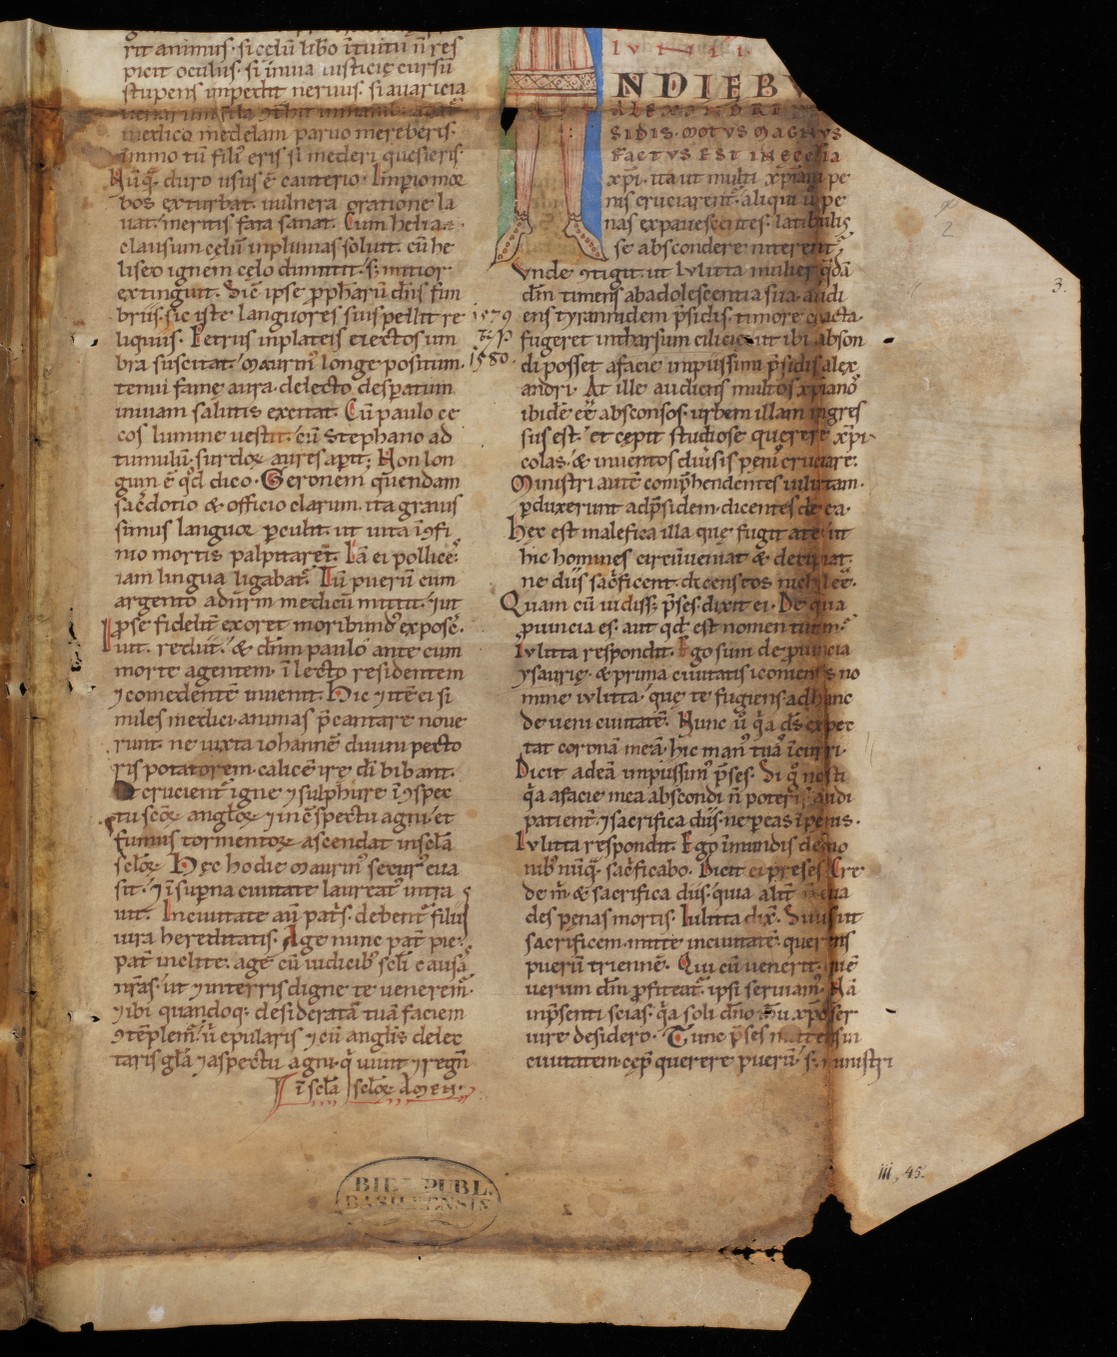 rit animus· si celū libo ītuitu n̄ res
picit oculus· si īnnia iusticie cursū
stupens impedit neruus· si auaricia
medico medelam paruo merebēris·
immo tū fili' eris si mederi quesieris·
Nūq̄· duro usus ē cauterio· Imp̄io mor
bos exturbat· uulnera oratione la
uat· meritis fata sanat· Cum helia
clausum celū inpluuias soluit· cū he
liseo ignem celo dimittit· s; mitior
extinguit· Sic̄ ipse p̄phārū dn̄s fim
briis· sic iste languores suis pellit re
liquiis· Petrus inplateis eiectos um
bra suscitat· Maurin' longe positum·
tenui fame aura· delecto desp̄atum
inuiam salutis excitat· Cū paulo ce
cos lumine uestit· cū Stephano ad
tumulū· surdoꝝ aures ap̄it; Non lon
gum ē q̄d dico· Geronem quendam
sac̄dotio & officio clarum· ita grauis
simus languor p̄culit· ut uita ī ɔfi
nio mortis palpitaret· Iā ei pollice
iam lingua ligabat̄· Tū puerū cum
argento adn̄rm medicū mittit· ⁊ ut
ipse fidelit̄ exoret moribund' exposc̄·
uit· rediit· & dn̄m paulo ante cum
morte agentem· ī lecto residentem
⁊ comedentē inuenit· Hic ⁊ itē ei si
miles medici animas p̄cantare noue
runt· ne iuxta iohannē diuini pecto
ris potatorem· calicē irę dī bibant·
Et crucient̄ igne ⁊ sulphure ī ɔspec
tu scōꝝ angloꝝ ⁊ in ɔspectu agni· et
fumus tormentoꝝ ascendat in sc̄la
sc̄loꝝ Hęc hodie Maurin' secur' eua
sit· ⁊ ī sup̄na ciuitate laureat' intra
uit· Inciuitate aū pat̄s· debent̄ filiis
iura hereditatis· Age nunc pat̄ pie·
pat̄ inclite· age cū iudicib' sc̄li causā
nr̄as· ut ⁊ interris digne te ueneremˀ·
⁊ ibi quandoq; desideratā tuā faciem
ɔtēplem'· ū epularis ⁊ cū anglis delec
taris gl̄a ⁊ aspectu agni· q̄ uiuit ⁊ regn̄
ī sc̄la sc̄loꝝ Amen·
1579
1580·
NDIEBV
SIDIS· MOTVS MAGNVS
FACTVS EST IN ECCLIA
xp̄i· ita ut multi xp̄iani pe
nis cruciarent̄· aliqui ū pe
nas expauescentes· latibulis
se abscondere niterent̄·
Vnde ɔtigit· ut Iulitta mulier q̄dā
dm̄ timens abadolescentia sua· audi
ens tyrannidem p̄sidis· timore coacta·
fugeret intharsum ciliciẹ· ut ibi abscon
di posset afacie inpiissimi p̄sidis alex
andri· At ille audiens multos xp̄iano'
ibidē ēē absconsos· urbem illam ingres
sus est· et cepit studiose querere xp̄i
colas· & inuentos diūsis peni' cruciare·
Ministri autē comp̄hendentes iulittam·
p̄duxerunt adp̄sidem· dicentes de ea·
Hec est malefica illa quę fugit ate· ut
hic homines circūueniat & decipiat·
ne diis sac̄ficent· dicens eos nichil ēē·
Quam cū uidiss; p̄ses dixit ei· De qua
p̄uincia es· aut qd̄ est nomen tuum·
Iulitta respondit· Ego sum de p̄uincia
ysaurię· & prima ciuitatis iconensis no
mine iulitta· quę te fugiens adhanc
deueni ciuitatē· Nunc ū q̄a ds̄ expec
tat coronā meā· hic man' tuā' īcurri·
Dicit adeā impiissim' p̄ses· Si q̄ nosti
q̄a afacie mea abscondi n̄ poteris· audi
patient̄ ⁊ sacrifica diis· ne pereas ī penis·
Iulitta respondit· Ego īmundis demo
nib' nūq̄· sac̄ficabo· Dicit ei preses Cre
de m̄· & sacrifica diis· quia alit̄ n̄ eua
des penas mortis· Iulitta dix̄· Si uis ut
sacrificem· mitte inciuitatē· querens
puerū triennē· Qui cū uenerit· quē
uerum dm̄ p̄fiteat̄· ipsi seruiam'· Nā
inp̄senti scias· q̄a soli dn̄o ihu xp̄o ser
uire desidero· Tunc p̄ses mittens in
ciuitatem· cep̄ querere puerū· s; ministri
2
3·
iii, 45.
BIBL. PUBL.
BASILEENSIS